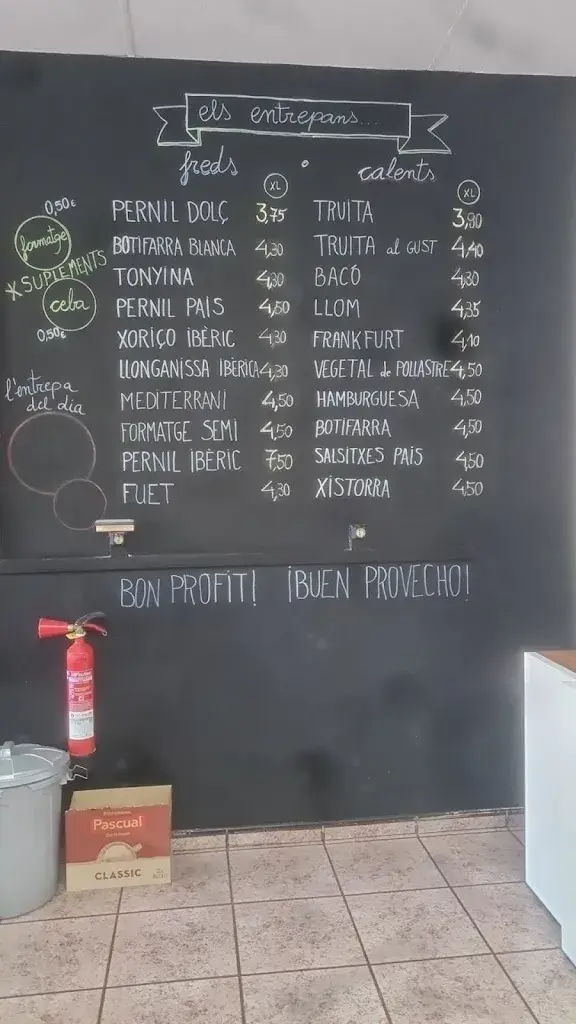 els entrepans...
freds • calents
XL XL
PERNIL DOLÇ 3,75
BOTIFARRA BLANCA 4,30
TONYINA 4,30
PERNIL PAIS 4,50
XORIÇO IBÈRIC 4,30
LLONGANISSA IBÈRICA 4,30
MEDITERRANI 4,50
FORMATGE SEMI 4,50
PERNIL IBÈRIC 7,50
FUET 4,30
TRUITA 3,90
TRUITA al GUST 4,40
BACÓ 4,30
LLOM 4,35
FRANKFURT 4,10
VEGETAL de POLLASTRE 4,50
HAMBURGUESA 4,50
BOTIFARRA 4,50
SALSITXES PAIS 4,50
XISTORRA 4,50
0,50€
formatge
*SUPLEMENTS
ceba
0,50€
l'entrepa
del dia
BON PROFIT! ¡BUEN PROVECHO!
Pascual
CLASSIC